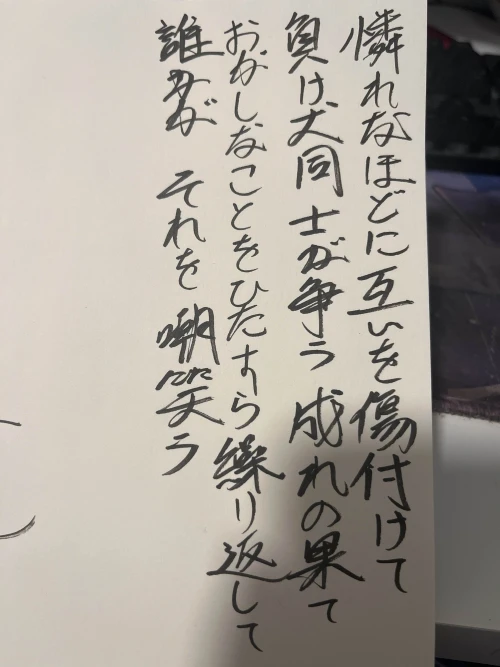 憐れなほどに互いを傷付けて
負け犬同士が争う 成れの果て
おかしなことをひたすら繰り返して
誰かが それを 嘲笑う